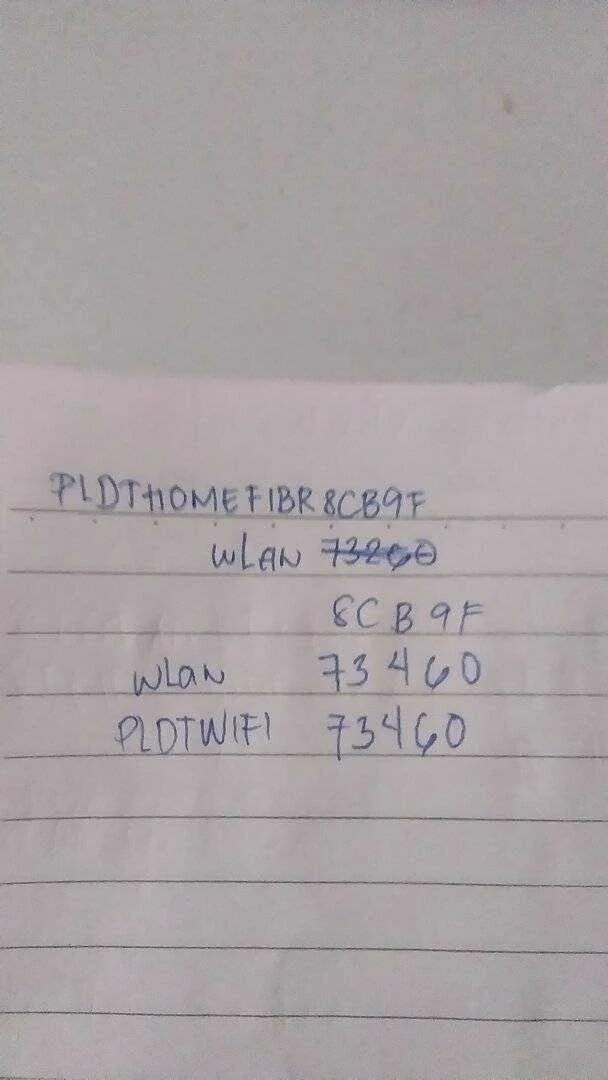 PLDTHOMEFIBR8CB9F
WLAN
8CB9F
WLAN 73460
PLDTWIFI 73460